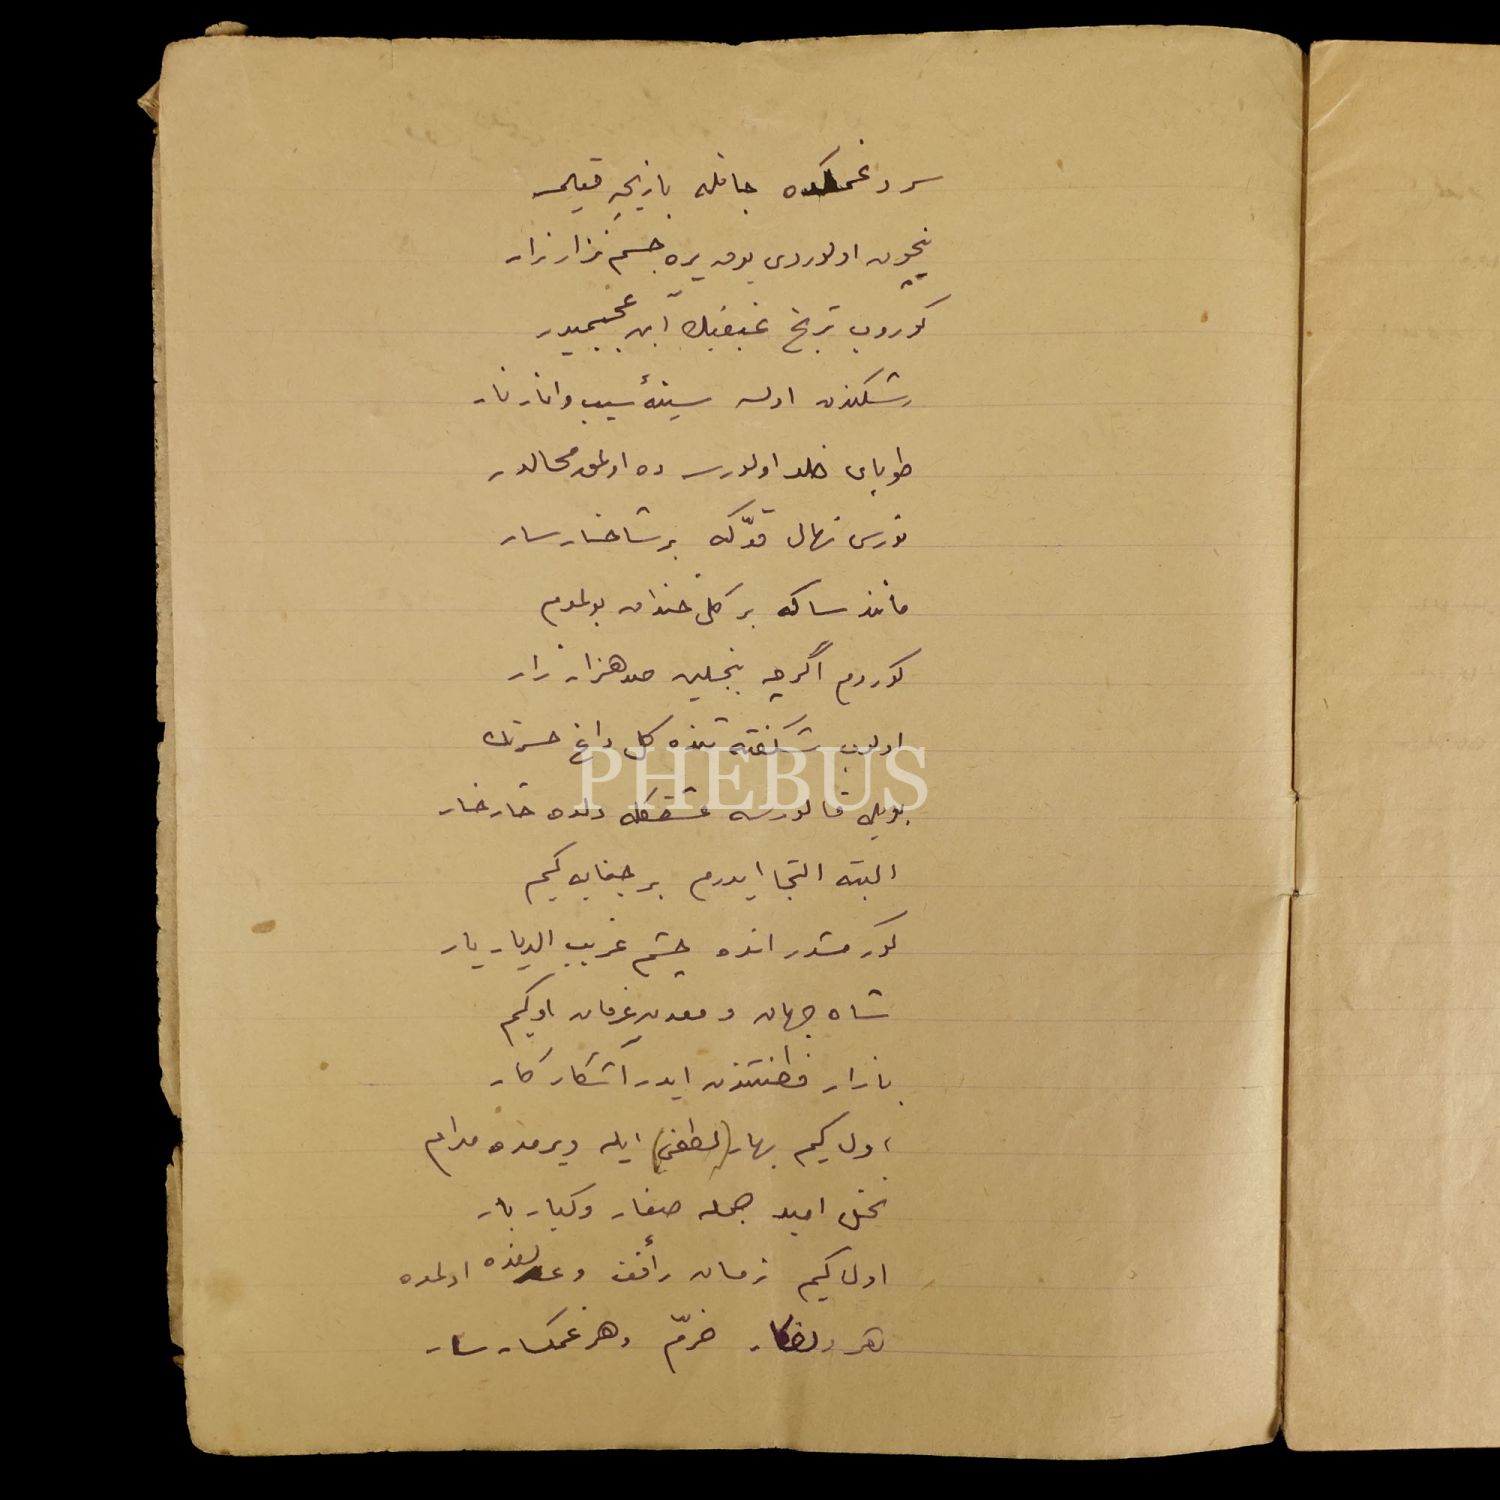 سر د غمكده جانله بازیچهٔ قیلمسه
نیچون اولوردی بویله یره جسم نزار زار
كوروب ترنج غبغبڭ آبی عجبمیدر
رشكندن اولسه سینهٔ سیب و انار نار
طوبای خلد اولورسه ده اولمق محالدر
نورس نهال قدّكه بر شاخسار سار
مانند ساكه بر گل خندان بولمدم
كوردم اگرچه بنجلین صد هزار زار
اولوب شكفته تنده گل داغ حسرتڭ
بویله قالورسه عشقكله دلده خار خار
البته التجا ایدرم بر جنابه كیم
كورمشدر انده چشم غریب الدیار یار
شاه جهان و معدن عرفان اوكیم
بازار فطنتندن ایدر آشكار كار
اول كیم بهار (لطفی) ایله ویرمده مدام
نخل امید جمله صغار و كبار بار
اول كیم زمان رأفت و عدلنده اولمده
هر دلفكار خرّم و هر غمكسار سار
PHEBUS